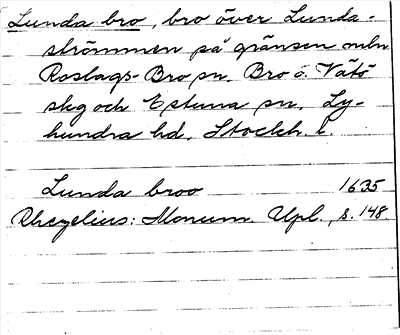 Lunda bro, bro över Lunda-
strömmen på gränsen mln
Roslags-Bro sn. Bro o. Vätö
skg och Estuna sn. Ly-
hundra hd. Stockh. l.
Lunda broo 1635
Rhezelius: Monum. Upl., s. 148.